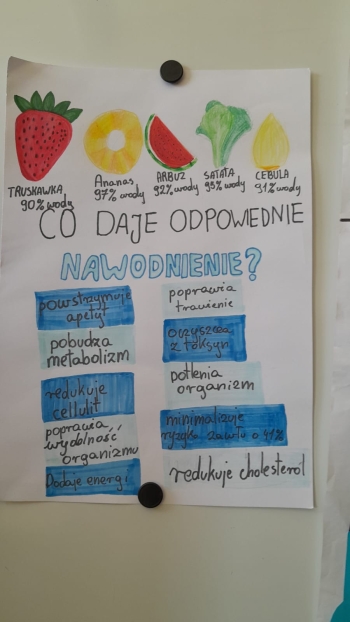 TRUSKAWKA
90% wody
Ananas
97% wody
ARBUZ
92% wody
SAŁATA
95% wody
CEBULA
91% wody
CO DAJE ODPOWIEDNIE
NAWODNIENIE?
powstrzymuje
apetyt
pobudza
metabolizm
redukuje
cellulit
poprawia
wydolność
organizmu
Dodaje energi
poprawia
trawienie
oczyszcza
z toksyn
dotlenia
organizm
minimalizuje
ryzyko zawału o 41%
redukuje cholesterol